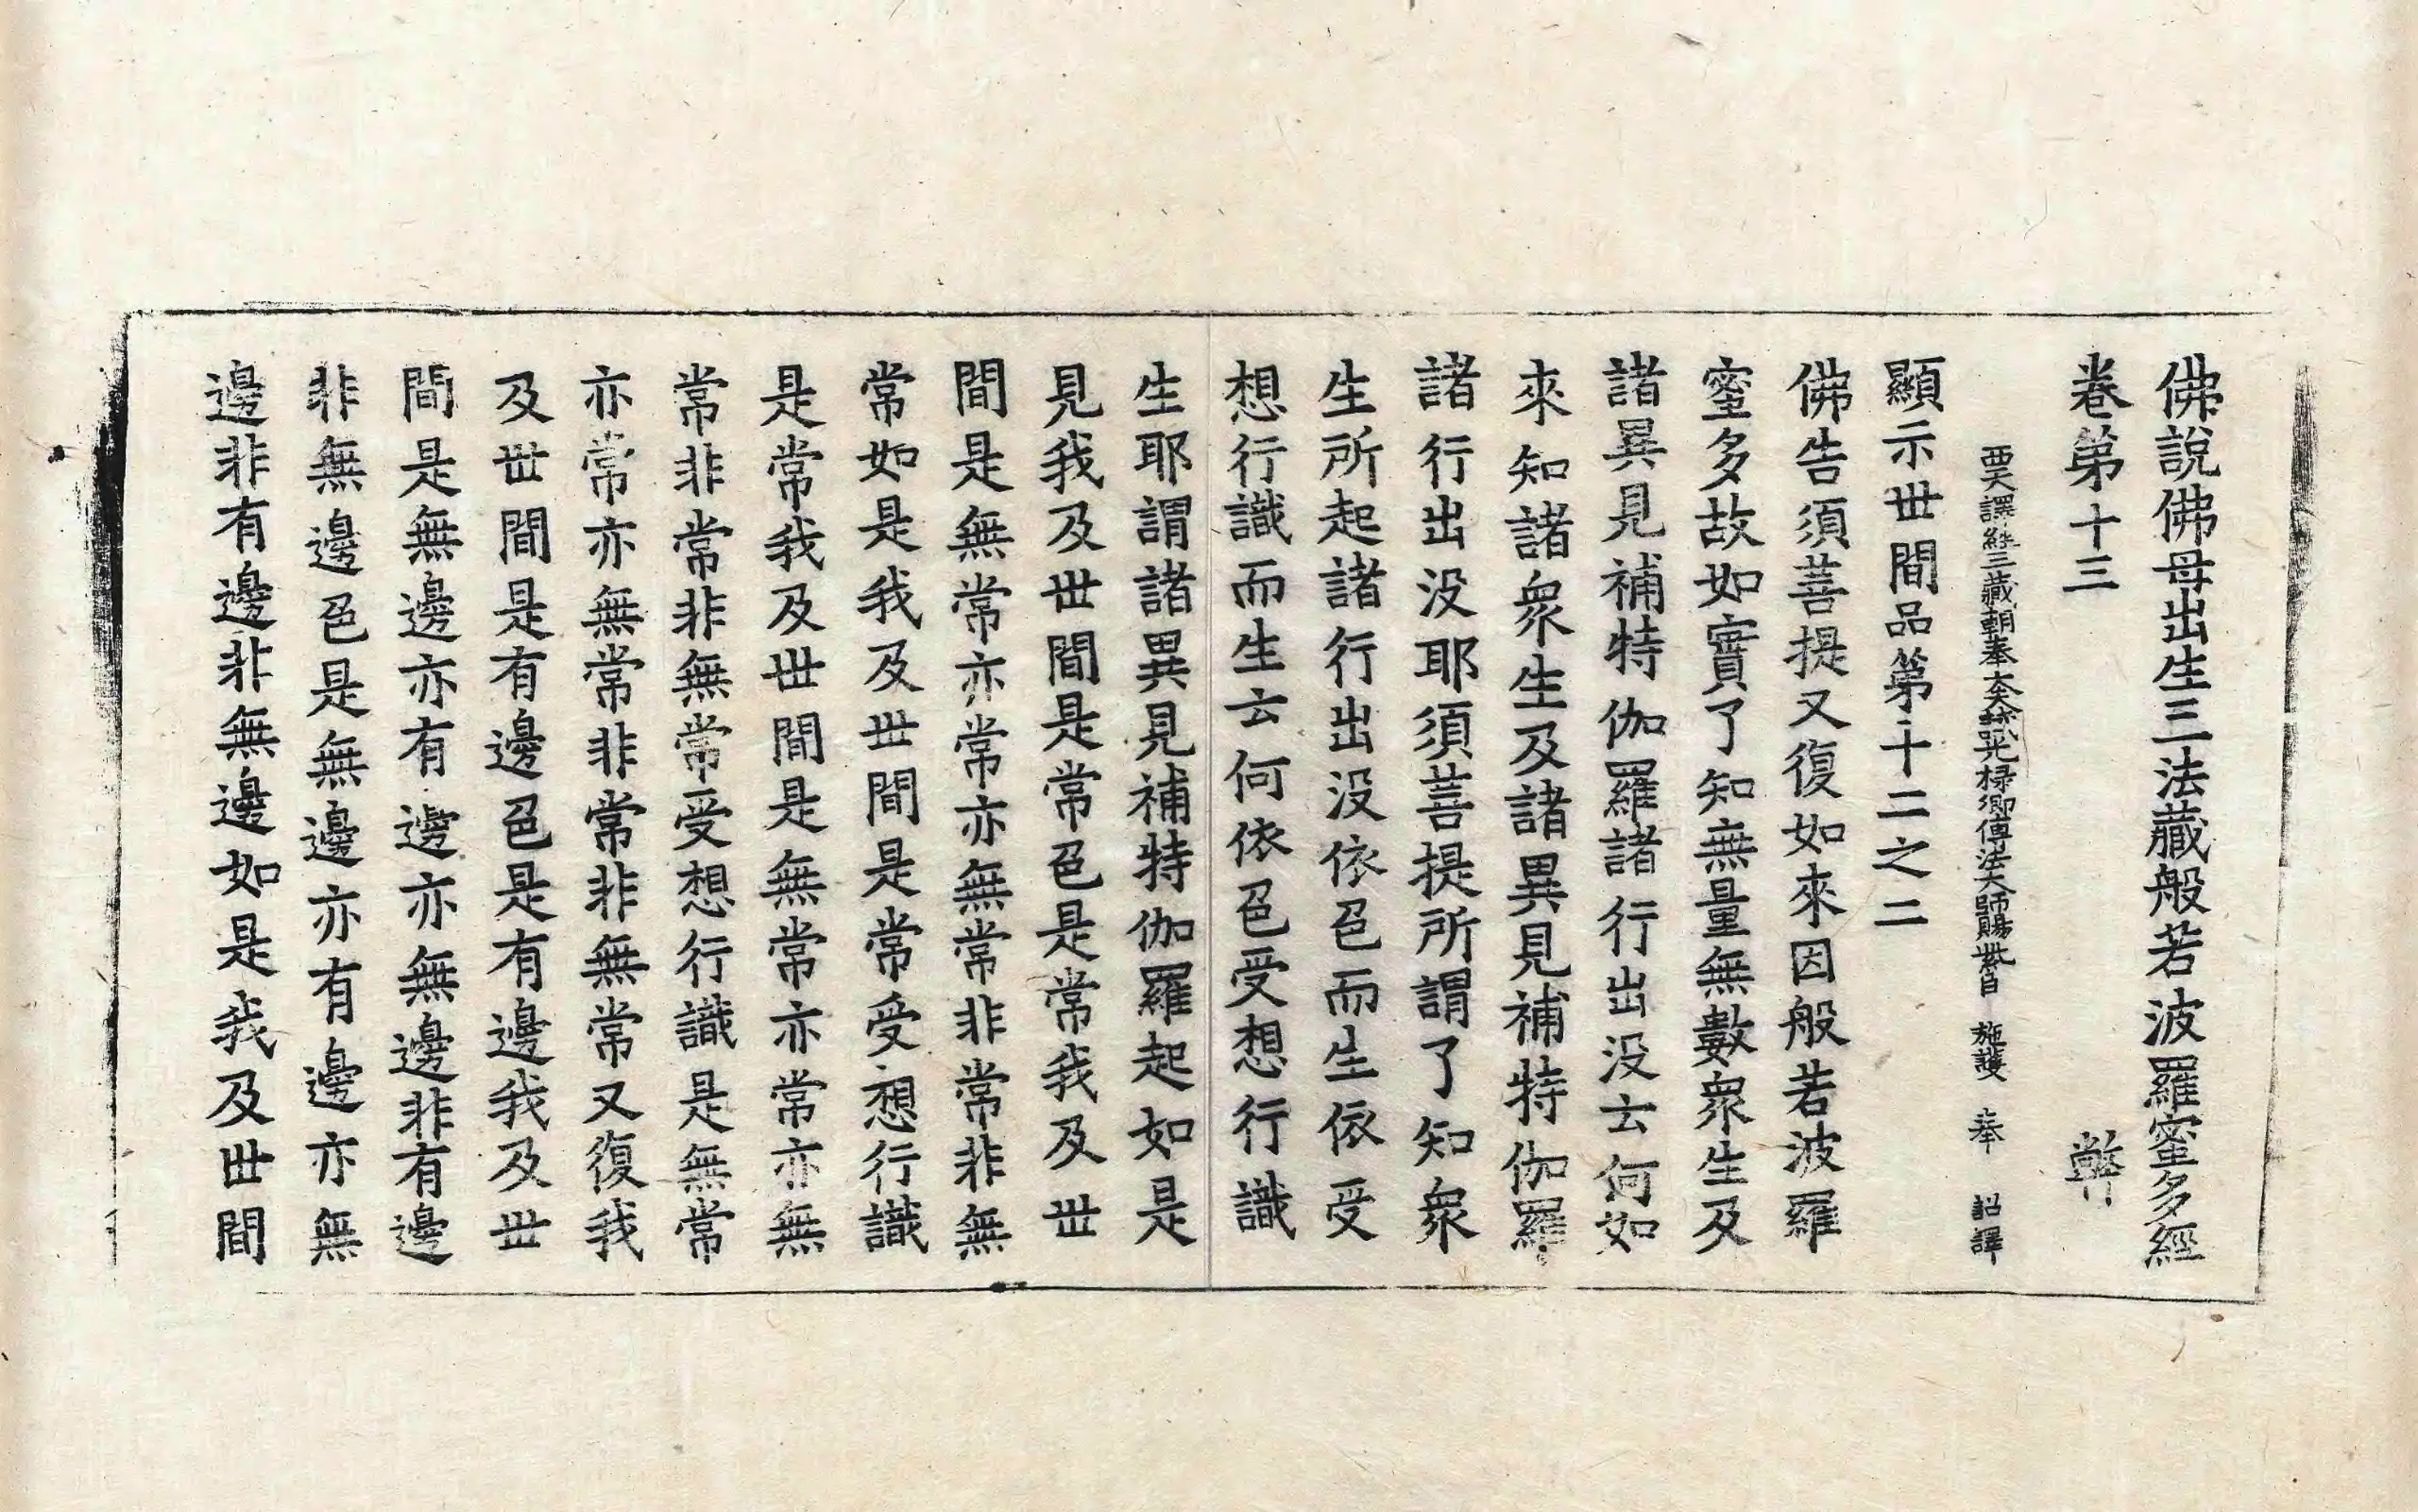 佛說佛母出生三法藏般若波羅蜜多經
卷第十三
西天譯經三藏朝奉大夫試光祿卿傳法大師賜紫臣 施護 奉 詔譯
顯示世間品第十二之二
佛告須菩提又復如來因般若波羅
蜜多故如實了知無量無數衆生及
諸異見補特伽羅諸行出没云何如
來知諸衆生及諸異見補特伽羅
諸行出没耶須菩提所謂了知衆
生所起諸行出没依色而生依受
想行識而生云何依色受想行識
生耶謂諸異見補特伽羅起如是
見我及世間是常色是常我及世
間是無常亦常亦無常非常非無
常如是我及世間是常受想行識
是常我及世間是無常亦常亦無
常非常非無常受想行識是無常
亦常亦無常非常非無常又復我
及世間是有邊色是有邊我及世
間是無邊亦有邊亦無邊非有邊
非無邊色是無邊亦有邊亦無
邊非有邊非無邊如是我及世間